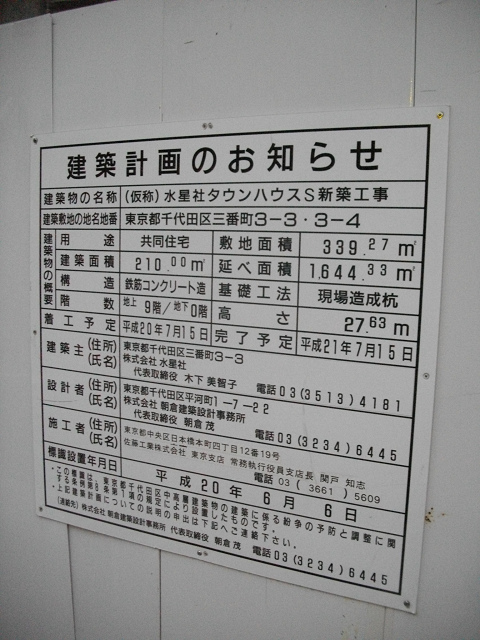 建築計画のお知らせ
建築物の名称 (仮称)水星社タウンハウスS新築工事
建築敷地の地名地番 東京都千代田区三番町3-3・3-4
建築物の概要
用途 共同住宅 敷地面積 339.27㎡
建築面積 210.00㎡ 延べ面積 1,644.33㎡
構造 鉄筋コンクリート造 基礎工法 現場造成杭
階数 地上9階/地下0階 高さ 27.63m
着工予定 平成20年7月15日 完了予定 平成21年7月15日
建築主(住所)(氏名) 東京都千代田区三番町3-3
株式会社 水星社
代表取締役 木下 美智子 電話03(3513)4181
設計者(住所)(氏名) 東京都千代田区平河町1-7-22
株式会社 朝倉建築設計事務所
代表取締役 朝倉 茂 電話03(3234)6445
施工者(住所)(氏名) 東京都中央区日本橋本町四丁目12番19号
佐藤工業株式会社 東京支店 常務執行役員支店長 関戸 知志
電話03(3661)5609
標識設置年月日 平成20年6月6日
・この標識は、東京都千代田区中高層建築物の建築に係る紛争の予防と調整に関
する条例第8条第1項の規定により設置したものです。
・上記建築計画についての説明の申出は下記へご連絡下さい。
(連絡先)株式会社 朝倉建築設計事務所 代表取締役 朝倉 茂 電話03(3234)6445